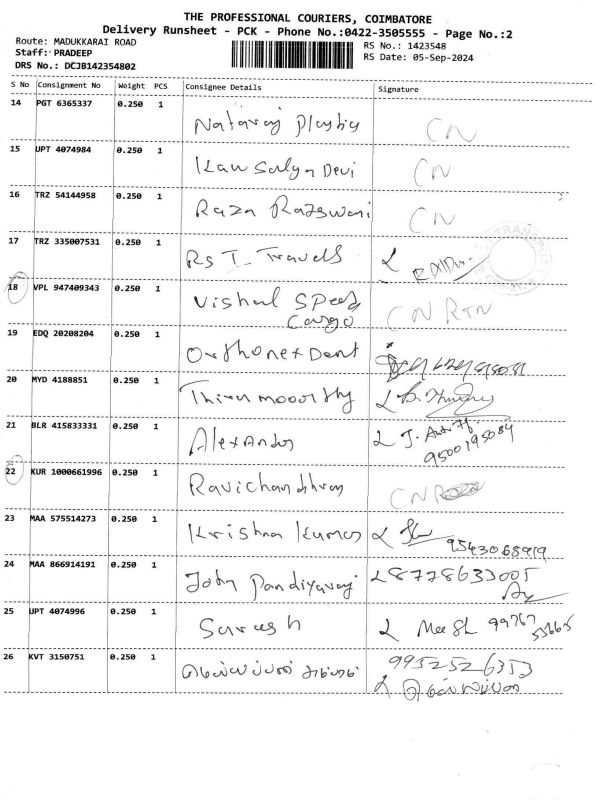 THE PROFESSIONAL COURIERS, COIMBATORE
Delivery Runsheet - PCK - Phone No.:0422-3505555 - Page No.:2
Route: MADUKKARAI ROAD
RS No.: 1423548
Staff: PRADEEP
RS Date: 05-Sep-2024
DRS No.: DCJB142354802
S No Consignment No Weight PCS Consignee Details Signature
14 PGT 6365337 0.250 1 Nataraj CN
15 UPT 4074984 0.250 1 Kausalya Devi CN
16 TRZ 54144958 0.250 1 Raza CN
17 TRZ 335007531 0.250 1 Rs T Travels
TRANSPORT
18 VPL 947409343 0.250 1 Vishal Speed Cargo CN RTN
19 EDQ 20208204 0.250 1 Orthonex Dent
20 MYD 4188851 0.250 1 Thirumoorthy
21 BLR 415833331 0.250 1 Alexander J.
9500195084
22 KUR 1000661996 0.250 1 Ravichandhran CN
23 MAA 575514273 0.250 1 Krishna Kumar
9543068919
24 MAA 866914191 0.250 1 John Pandiyaraj 8778633005
25 UPT 4074996 0.250 1 Suresh 99767
26 KVT 3150751 0.250 1 9952526353